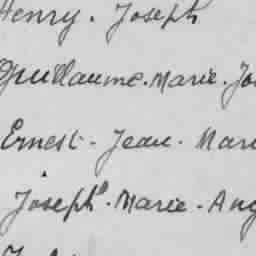 Henry. Joseph
Guillaume. Marie. Jos
Ernest. Jean. Mari
Joseph. Marie. Ang